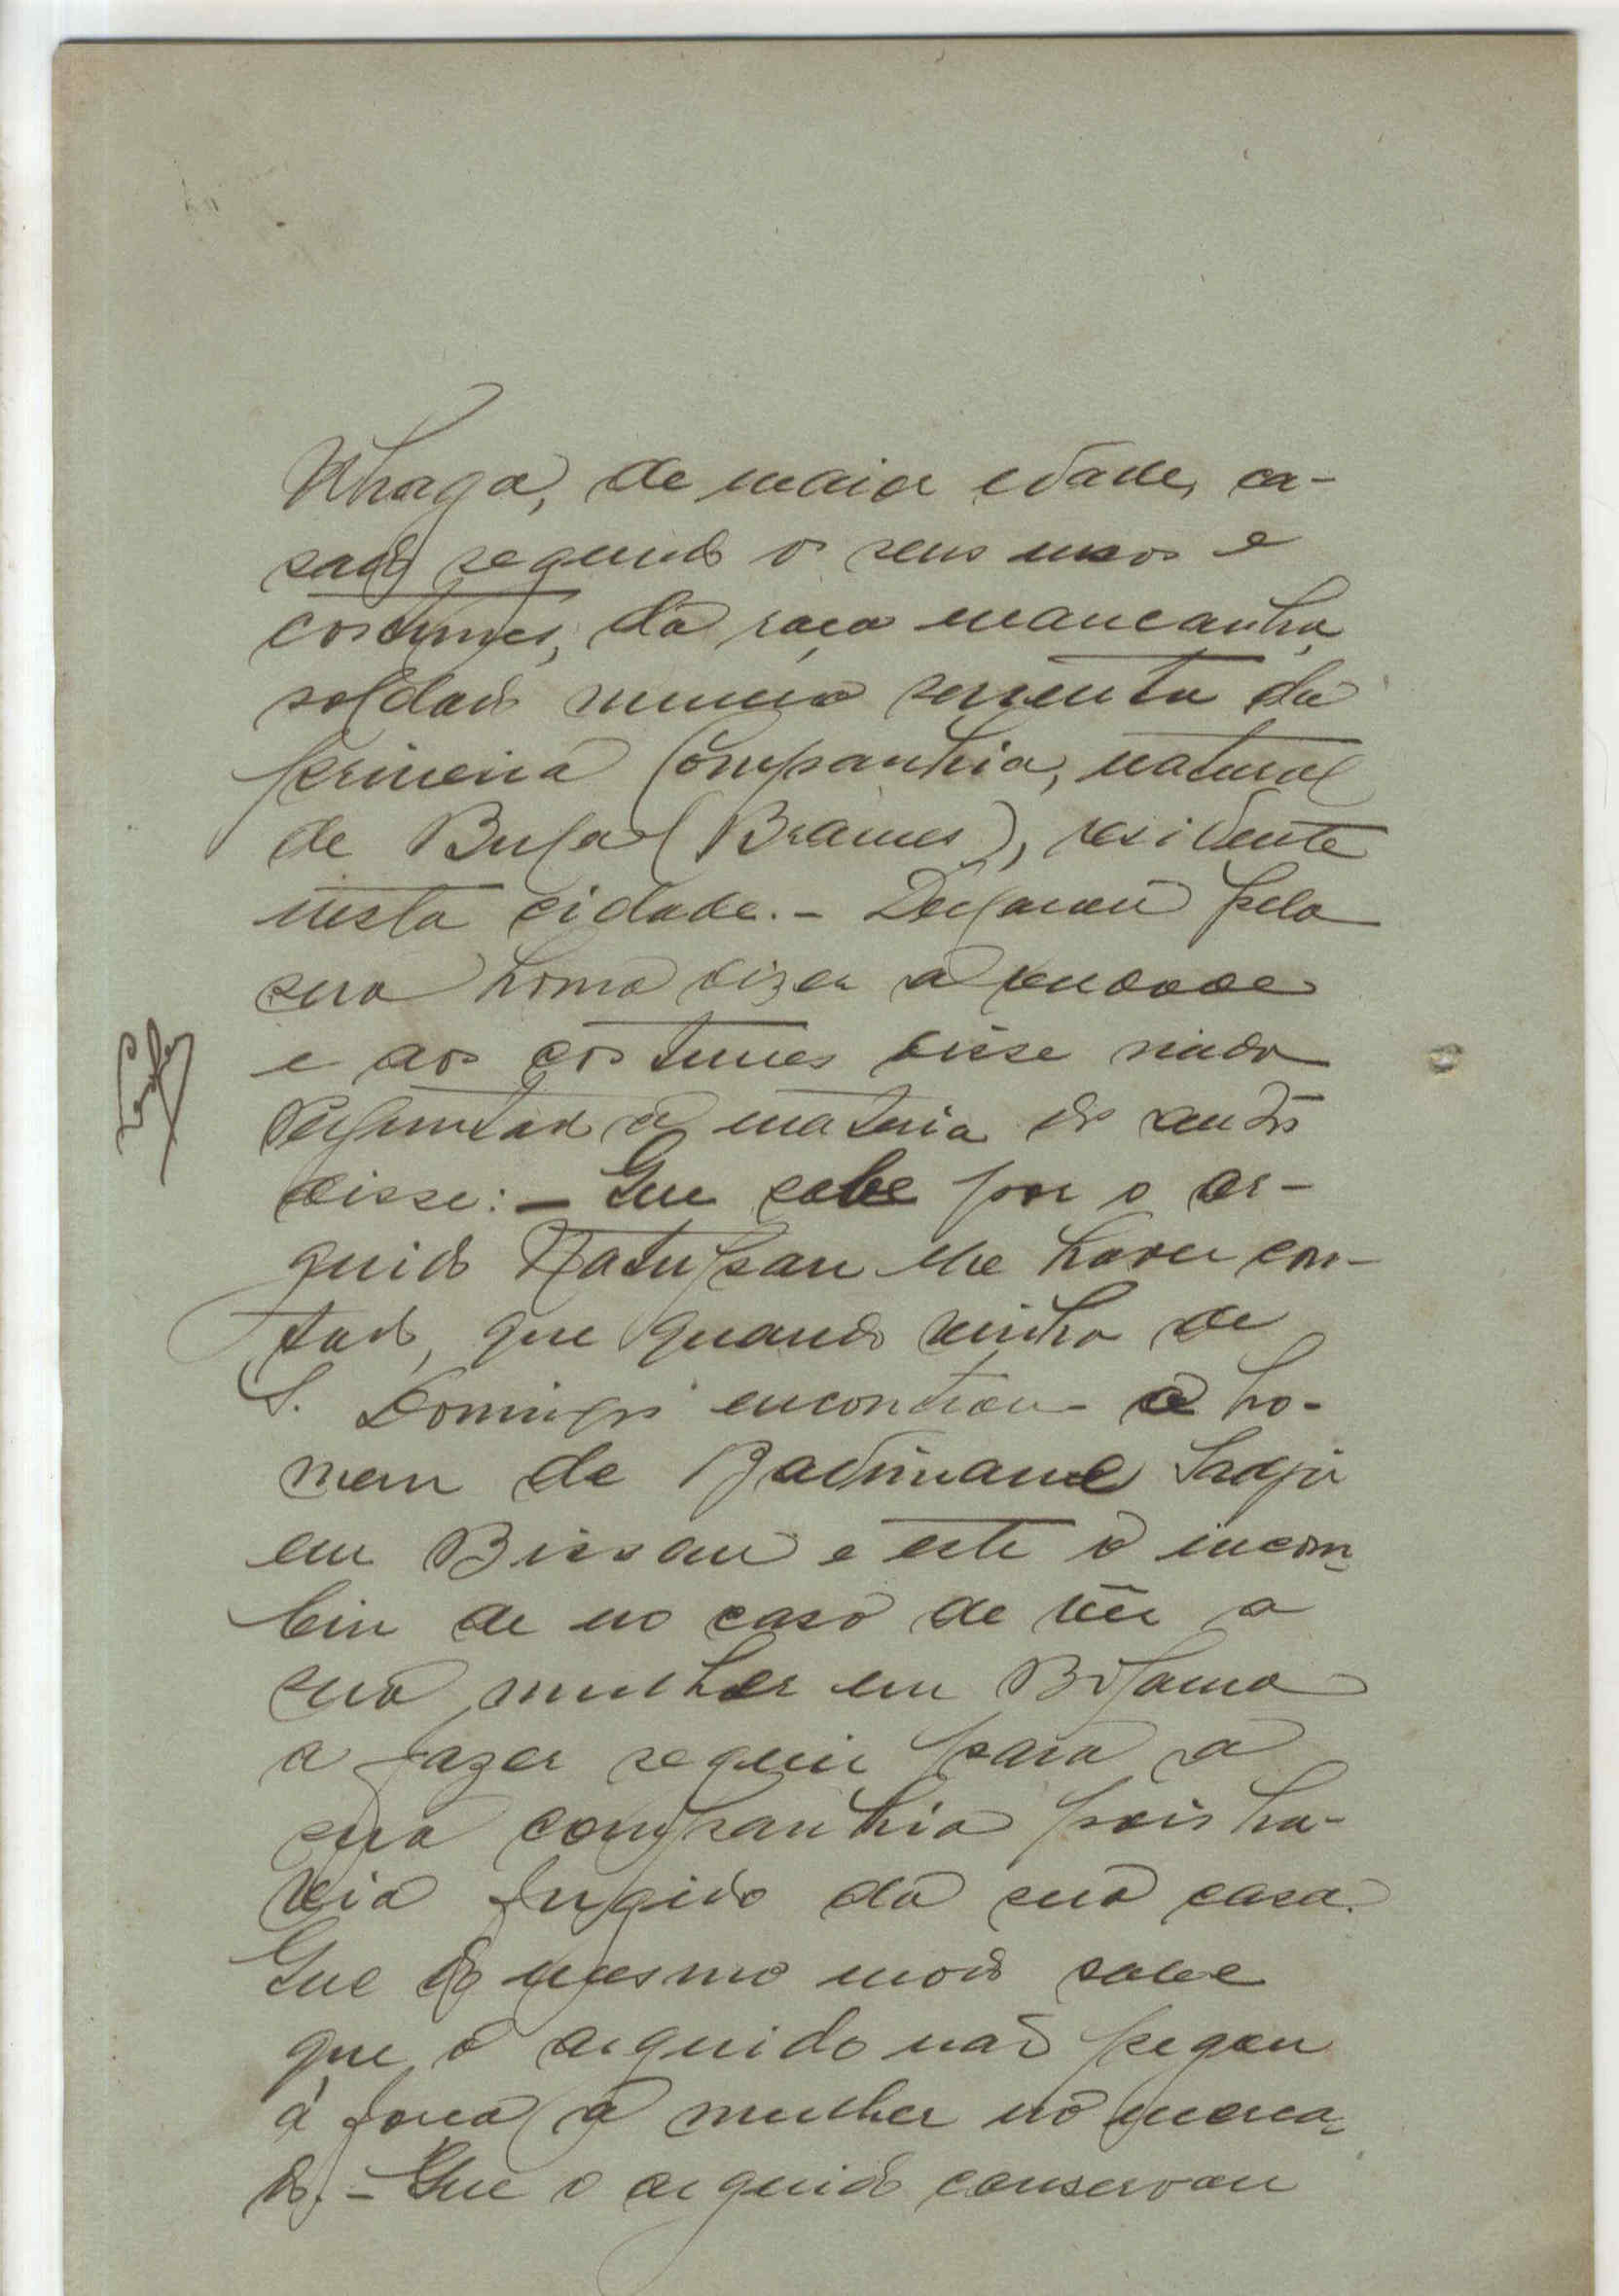 Nhaga, de maior edade, ca-
sado segundo os seus usos e
costumes, da raça mancanha,
soldado numero sessenta da
primeira Companhia, natural
de Bula (Brames), residente
nesta cidade. - Declarou pela
sua honra dizer a verdade
e aos costumes disse nada
Perguntado á materia do auto
disse: - Que sabe por o ar-
guido lhe haver con-
tado, que quando vinha de
S. Domingos encontrou o ho-
mem de
em Bissau e este o incum-
biu de no caso de vêr a
sua mulher em Bolama
a fazer seguir para a
sua companhia pois ha-
via fugido da sua casa.
Que do mesmo modo sabe
que o arguido não pegou
á força a mulher no merca-
do. - Que o arguido conservou